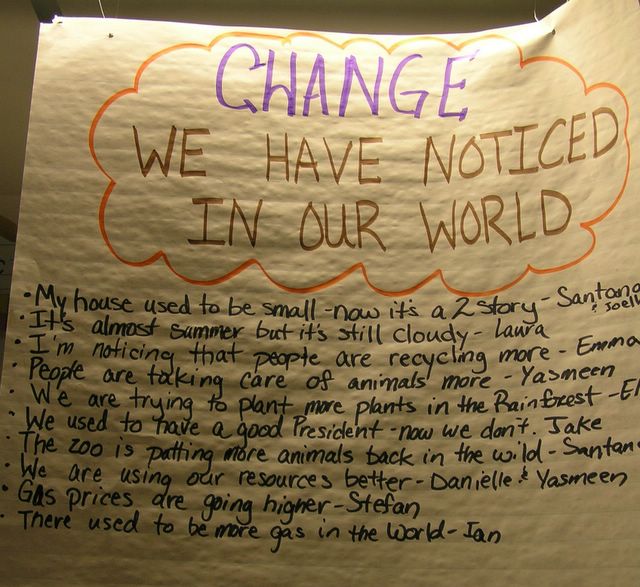 CHANGE
WE HAVE NOTICED
IN OUR WORLD
• My house used to be small - now it's a 2 story - Santana
& Joel
• It's almost summer but it's still cloudy - Laura
• I'm noticing that people are recycling more - Emma
• People are taking care of animals more - Yasmeen
• We are trying to plant more plants in the Rainforest -
• We used to have a good President - now we don't. Jake
• The zoo is putting more animals back in the wild - Santan
• We are using our resources better - Danielle & Yasmeen
• Gas prices are going higher - Stefan
• There used to be more gas in the World - Ian